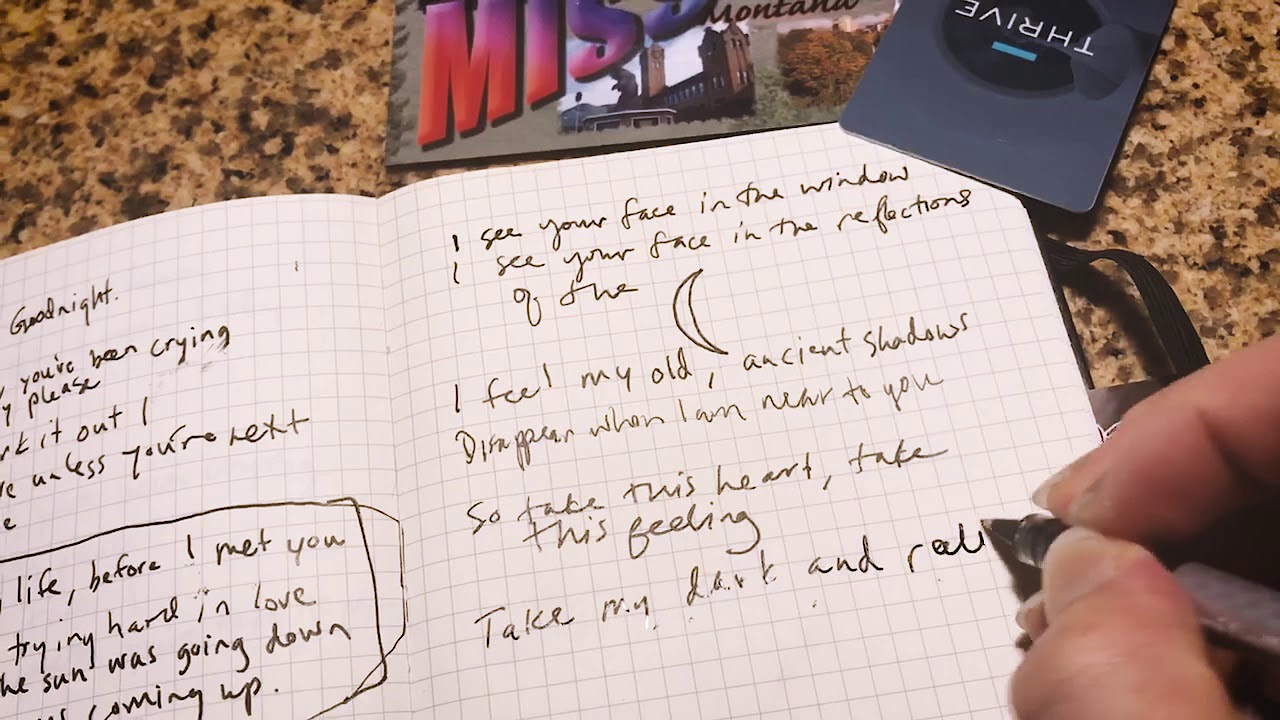 MISS
Montana
THRIVE
Goodnight.
you've been crying
please
it out I
unless you're next
life, before I met you
trying hard in love
sun was going down
coming up.
I see your face in the window
I see your face in the reflections
of the
I feel my old, ancient shadows
Disappear when I am near to you
So take this heart, take
this feeling
Take my dark and